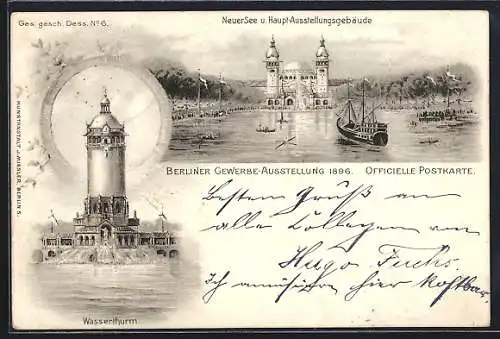 Ges. gesch. Dess. No 6.
Neuer See u. Haupt-Ausstellungsgebäude
KUNSTANSTALT J. MIESLER, BERLIN S.
BERLINER GEWERBE-AUSSTELLUNG 1896. OFFICIELLE POSTKARTE.
Besten Gruß an
alle Collegen von
Hugo Fuchs.
Ich amüsiren hier kostbar
Wasserthurm.